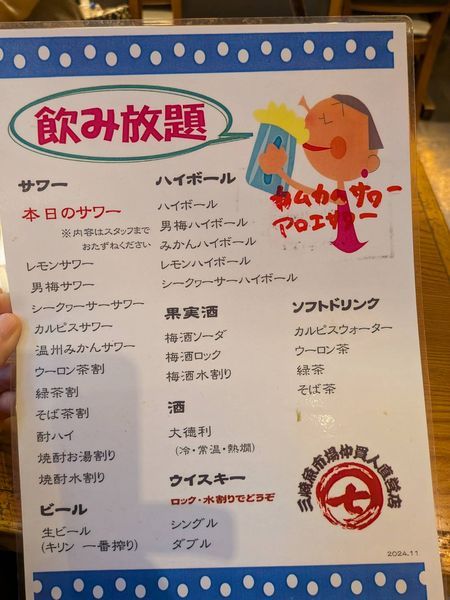 飲み放題
カムカムサワー
アロエサワー
サワー
本日のサワー
※内容はスタッフまで
おたずねください
レモンサワー
男梅サワー
シークヮーサーサワー
カルピスサワー
温州みかんサワー
ウーロン茶割
緑茶割
そば茶割
酎ハイ
焼酎お湯割り
焼酎水割り
ビール
生ビール
(キリン 一番搾り)
ハイボール
ハイボール
男梅ハイボール
みかんハイボール
レモンハイボール
シークヮーサーハイボール
果実酒
梅酒ソーダ
梅酒ロック
梅酒水割り
酒
大徳利
(冷・常温・熱燗)
ウイスキー
ロック・水割りでどうぞ
シングル
ダブル
ソフトドリンク
カルピスウォーター
ウーロン茶
緑茶
そば茶
三崎魚市場仲買人直営店
七
2024.11